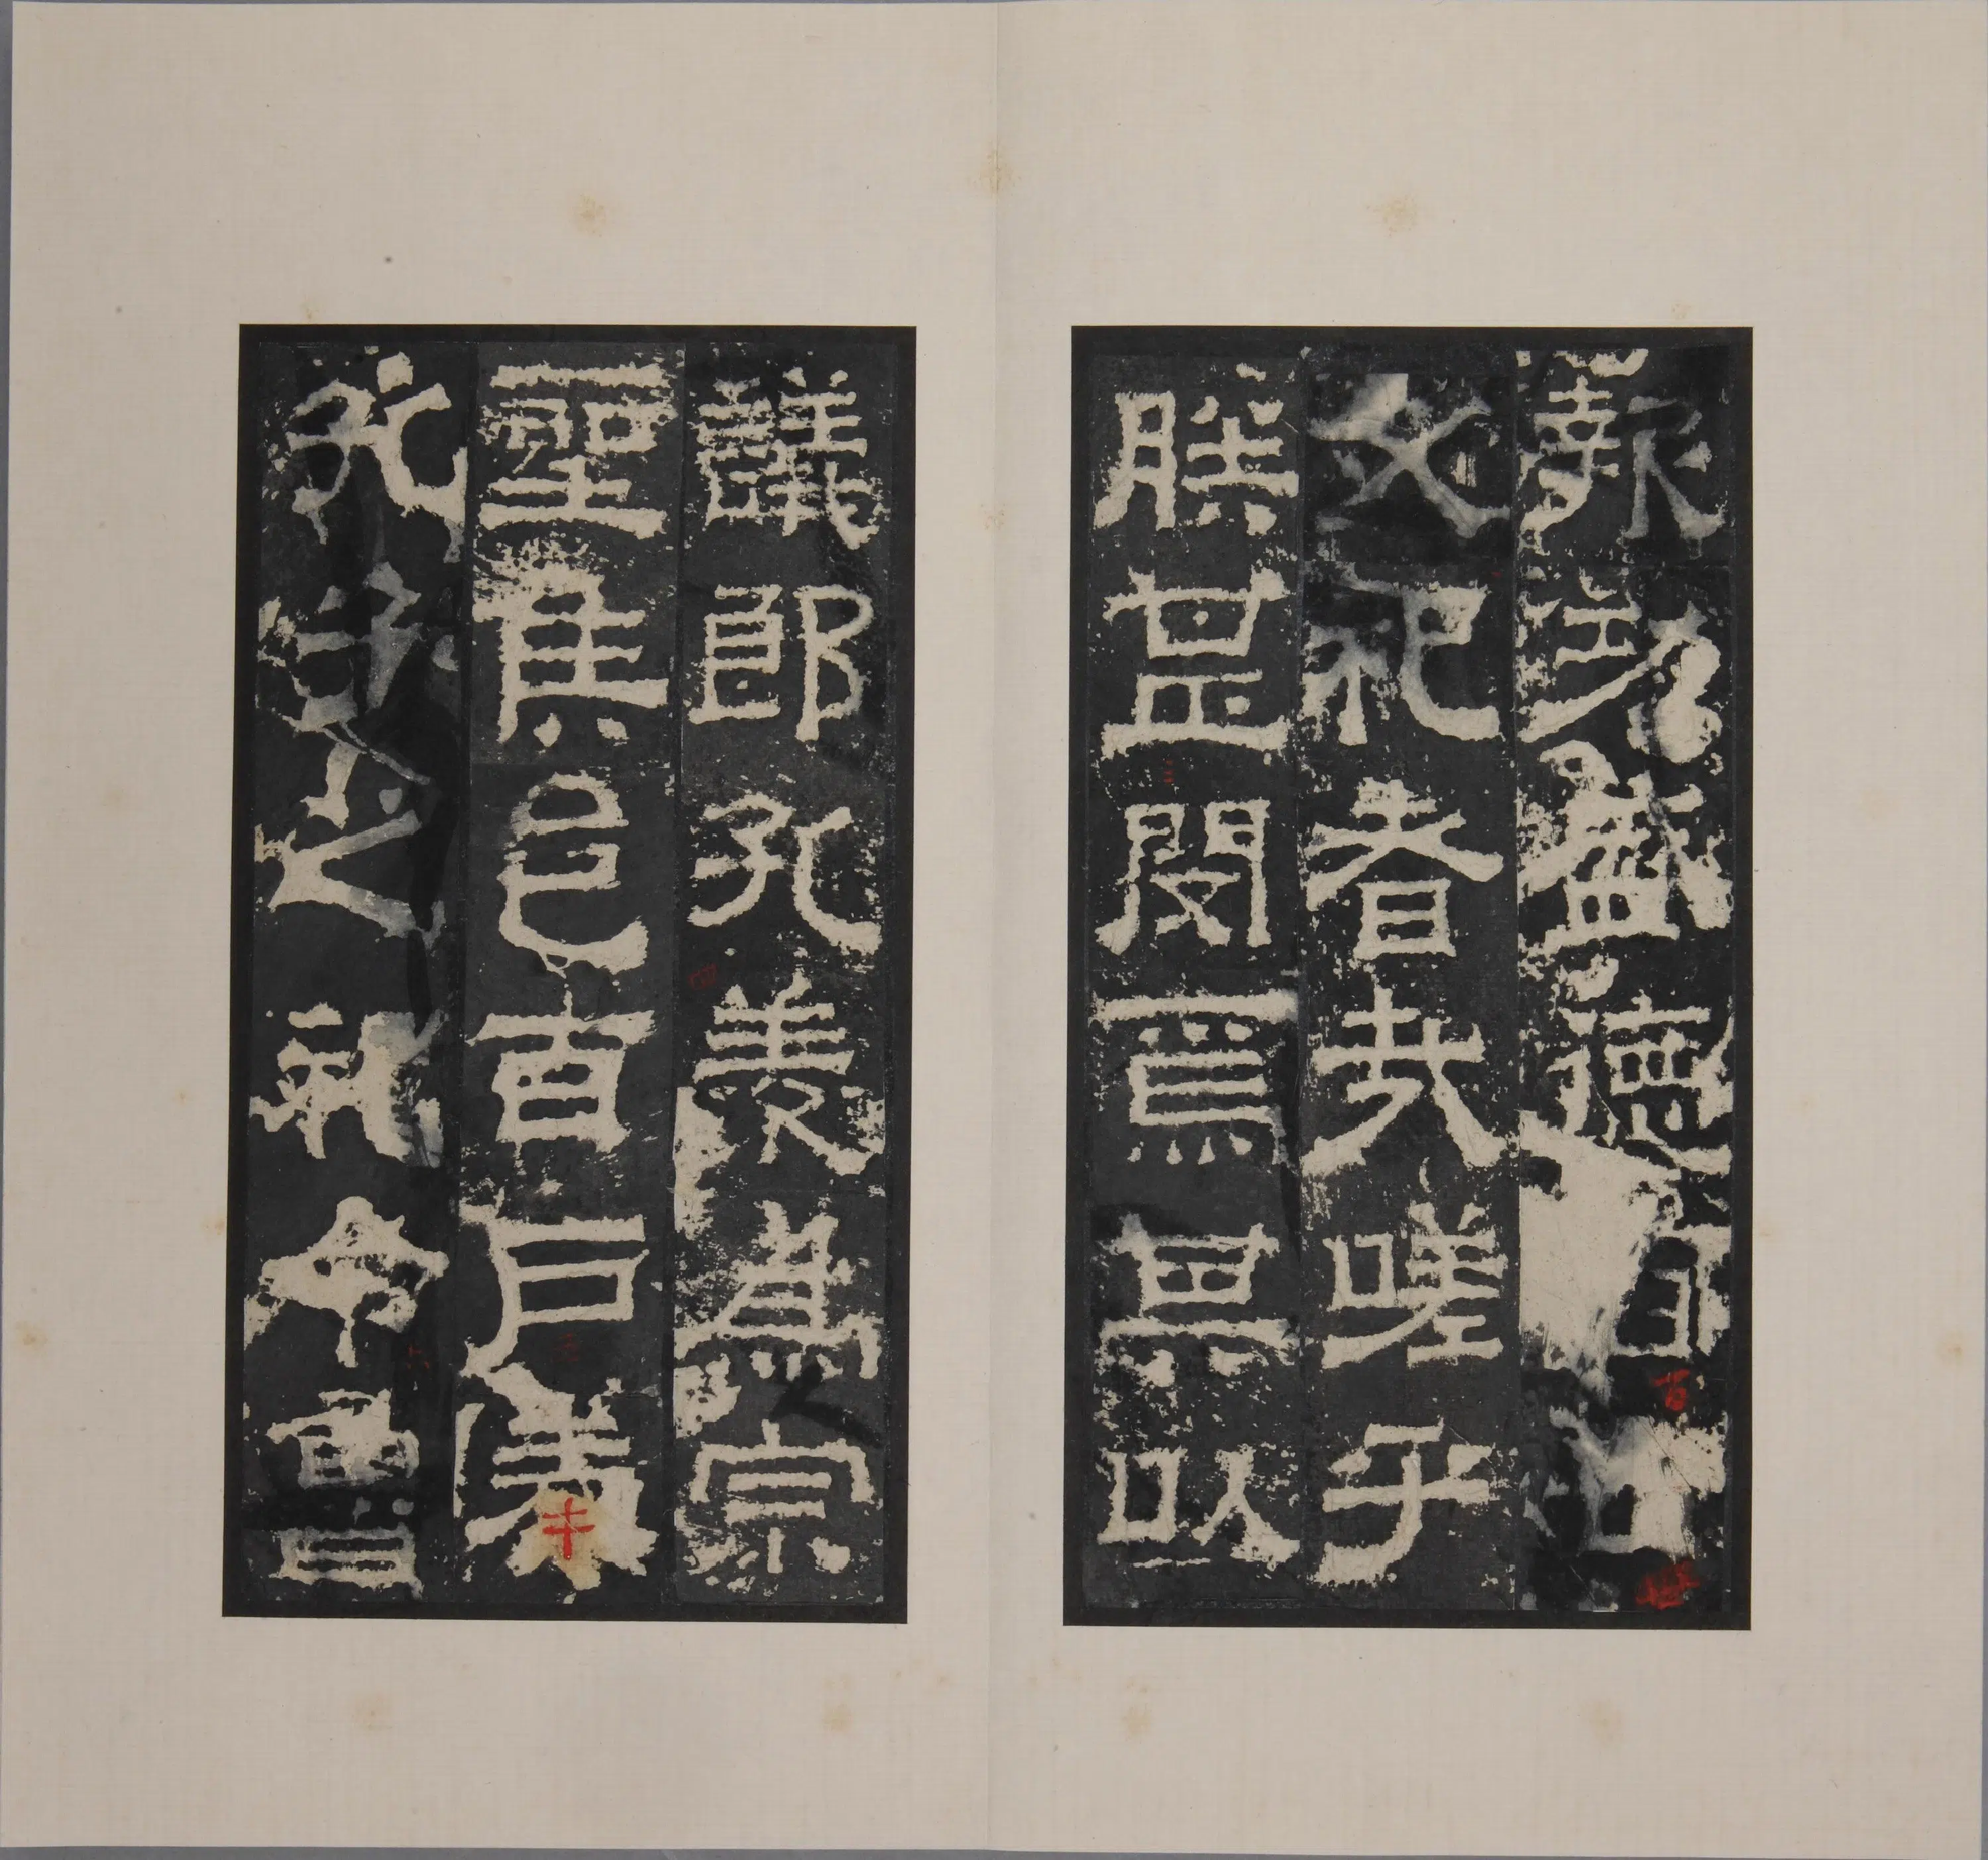 報功盛德百世
必祀者哉嗟乎
朕甚閔焉其以
議郎孔羨為宗
聖侯邑百戶奉
孔子之祀令魯